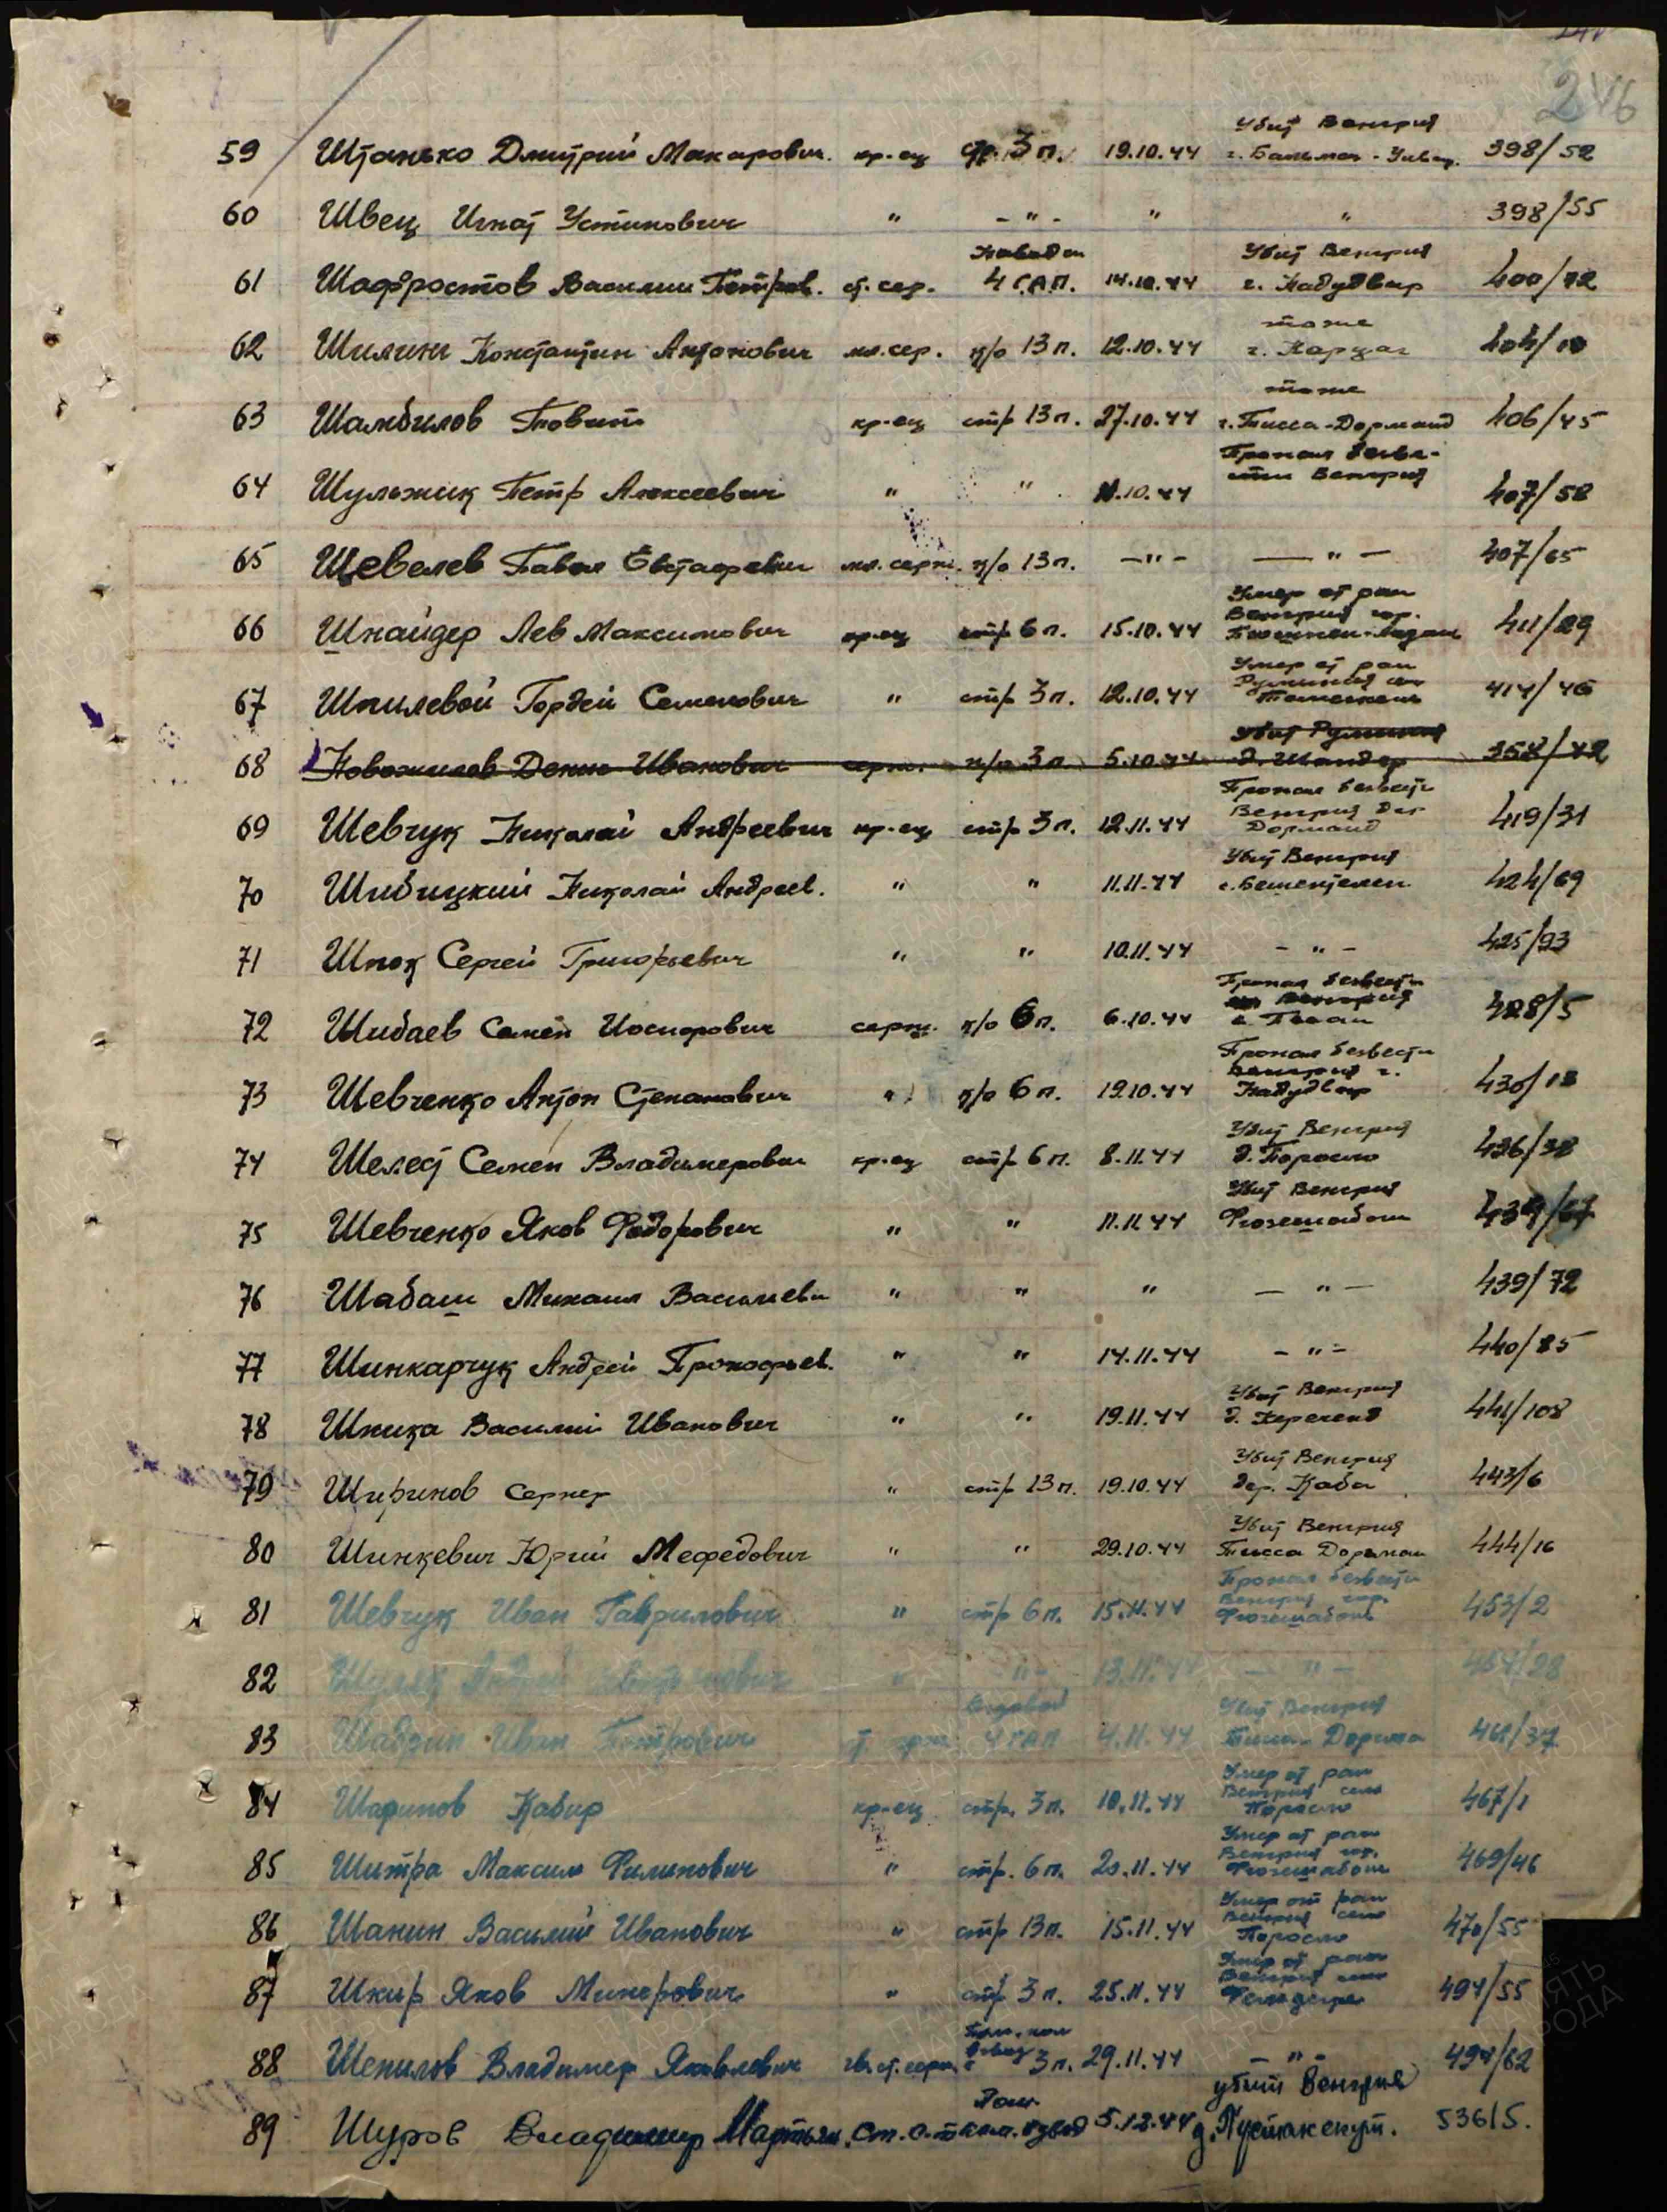 246
59 Штанько Дмитрий Макарович. кр-ец стр. 3 п. 19.10.44 Убит Венгрия г. 398/52
60 Швец Игнат Устинович " - " - " " 398/55
61 Шафростов Василий Петров. ст. сер. Наводч 4 ГАП. 14.10.44 Убит Венгрия г. Надудвар 400/72
62 Шилин Константин Антонович мл. сер. к/о 13 п. 12.10.44 тоже г. Карцаг 404/10
63 Шамбилов кр-ец стр 13 п. 27.10.44 тоже г. Тисса-Дорманд 406/45
64 Шульжик Петр Алексеевич " " 11.10.44 Пропал безве-сти Венгрия 407/58
65 Щевелев Павел Евстафевич мл. серж. к/о 13 п. - " - - " - 407/65
66 Шнайдер Лев Максимович кр-ец стр 6 п. 15.10.44 Умер от ран Венгрия гор. 411/29
67 Шпилевой Гордей Семенович " стр 3 п. 12.10.44 Умер от ран Румыния 414/46
68 Новожилов Денис Иванович серж. к/о 3 п 5.10.44 убит Румыния д. Шандор 358/42
69 Шевчук Николай Андреевич кр-ец стр 3 п. 12.11.44 Пропал безвести Венгрия дер Дорманд 419/31
70 Шибицкий Николай Андреев. " " 11.11.44 Убит Венгрия г. 424/69
71 Шпок Сергей Григорьевич " " 10.11.44 - " - 425/93
72 Шибаев Семен Иосифович серж. к/о 6 п. 6.10.44 Пропал безвести Венгрия 428/5
73 Шевченко Антон Степанович " к/о 6 п. 19.10.44 Пропал безвести Венгрия г. Надудвар 430/13
74 Шелест Семен Владимерович кр-ец стр 6 п. 8.11.44 Убит Венгрия д. Поросло 436/38
75 Шевченко Яков Федорович " " 11.11.44 Убит Венгрия Фюзешабонь 439/67
76 Шабаш Михаил Васильеви " " " - " - 439/72
77 Шинкарчук Андрей Прокофьев. " " 14.11.44 - " - 440/85
78 Шпика Василий Иванович " " 19.11.44 Убит Венгрия д. Кереченд 441/108
79 Ширинов Сержер " стр 13 п. 19.10.44 Убит Венгрия дер. Каба 443/6
80 Шинкевич Юрий Мефедович " " 29.10.44 Убит Венгрия Тисса Дорман 444/16
81 Шевчук Иван Гаврилович " стр 6 п. 15.11.44 Пропал безвести Венгрия гор. Фюзешабонь 453/2
82 Андрей " - " - 13.11.44 - " - 457/28
83 Шадрин Иван Петрович 4 ГАП 4.11.44 Убит Венгрия Тисса-Дорма 461/37
84 Шарипов Кабир кр-ец стр. 3 п. 10.11.44 Умер от ран Венгрия село Поросло 467/1
85 Шитра Максим Филипович " стр. 6 п. 20.11.44 Умер от ран Венгрия гор. Фюзешабонь 469/46
86 Шанин Василий Иванович " стр 13 п. 15.11.44 Умер от ран Венгрия село Поросло 470/55
87 Шкир Яков " стр 3 п. 25.11.44 Умер от ран Венгрия 494/55
88 Шепилов Владимер Яковлевич гв. ст. серж. Пом. ком взвод 3 п. 29.11.44 - " - 494/62
89 Шуров Владимир Мартьян. Ст. с-т Пом. ком. взвод 5.12.44 убит Венгрия 536/5.